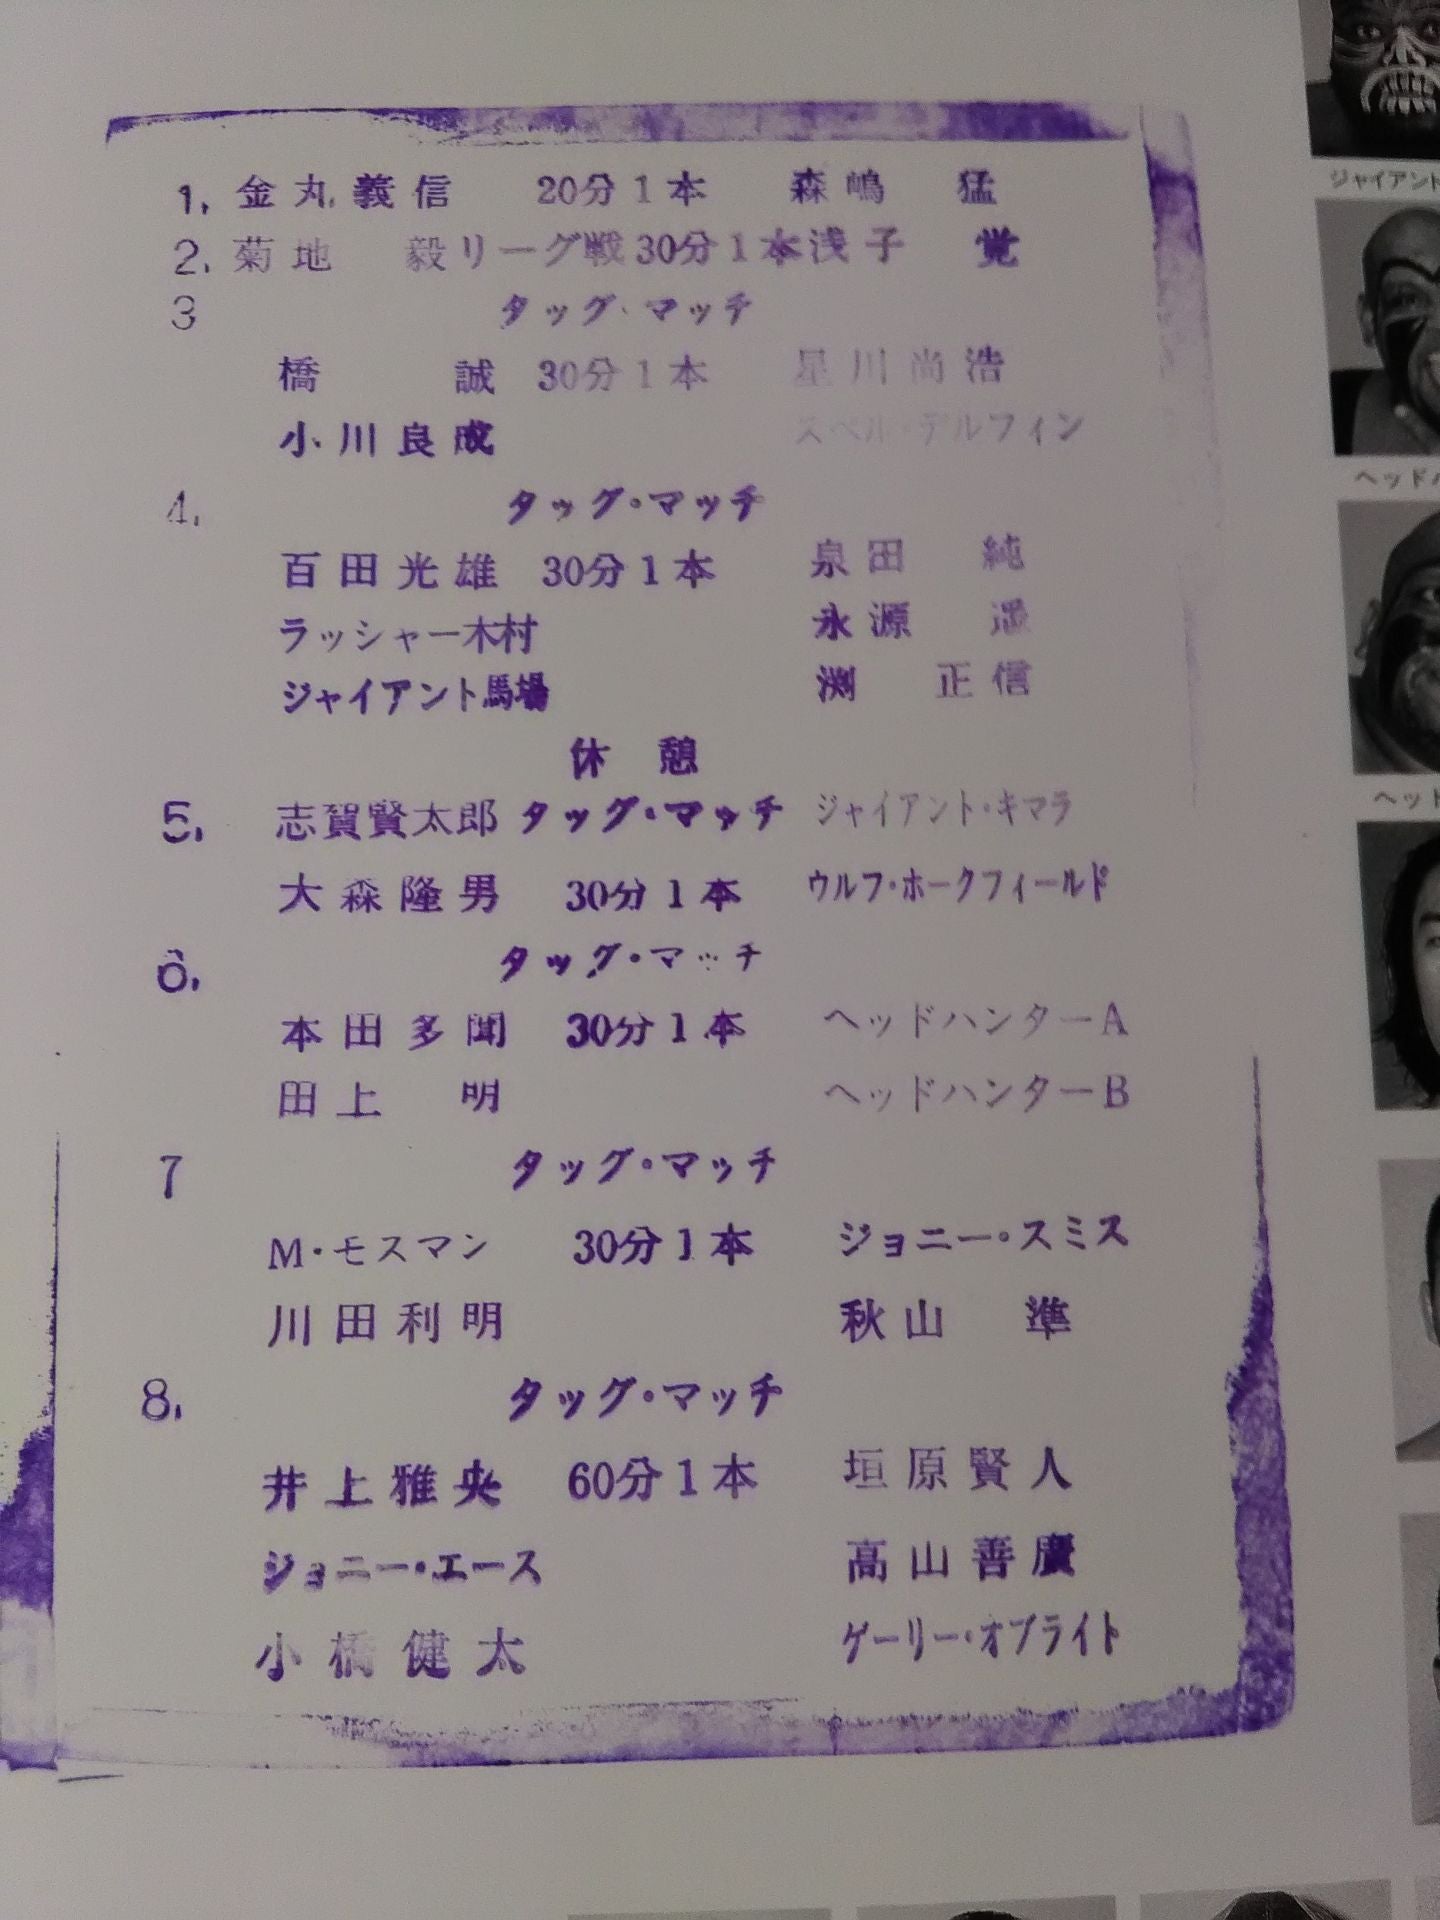 1. 金丸義信 20分1本 森嶋 猛
2. 菊地 毅 リーグ戦30分1本 浅子 覚
3 タッグ・マッチ
橋 誠 30分1本 星川尚浩
小川良成 スペル・デルフィン
4. タッグ・マッチ
百田光雄 30分1本 泉田 純
ラッシャー木村 永源 遥
ジャイアント馬場 渕 正信
休憩
5. 志賀賢太郎 タッグ・マッチ ジャイアント・キマラ
大森隆男 30分1本 ウルフ・ホークフィールド
6. タッグ・マッチ
本田多聞 30分1本 ヘッドハンターA
田上 明 ヘッドハンターB
7 タッグ・マッチ
M・モスマン 30分1本 ジョニー・スミス
川田利明 秋山 準
8. タッグ・マッチ
井上雅央 60分1本 垣原賢人
ジョニー・エース 高山善廣
小橋健太 ゲーリー・オブライト
ジャイアント
ヘッドハ
ヘッド